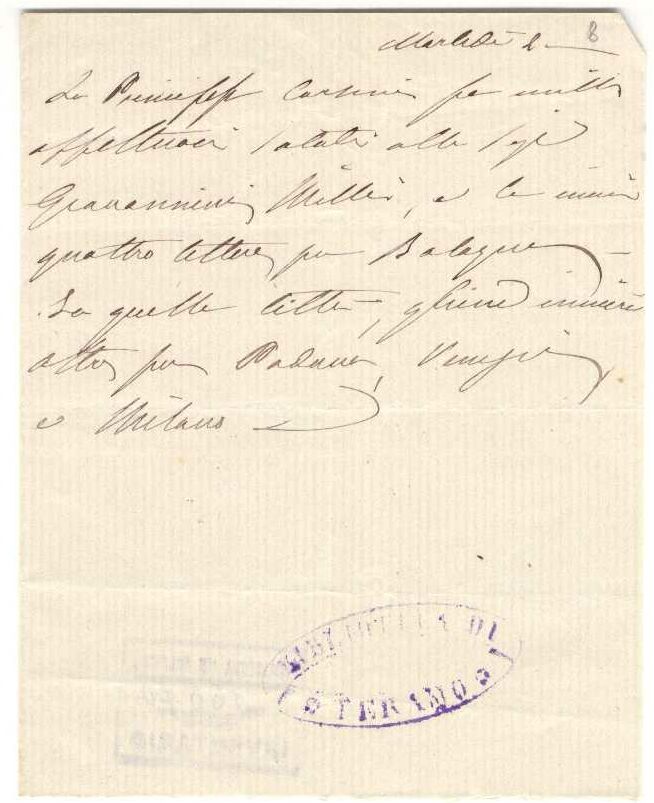 Martedì 2 8
La Principessa Corsini fa mille
affettuosi saluti alla Sigª
Giannina Milli, e le invia
quattro lettere per Bologna
Da quella città, gliene invierà
altre per Padova, Venezia,
e Milano
BIBLIOTECA DI
TERAMO
INVENTARIO